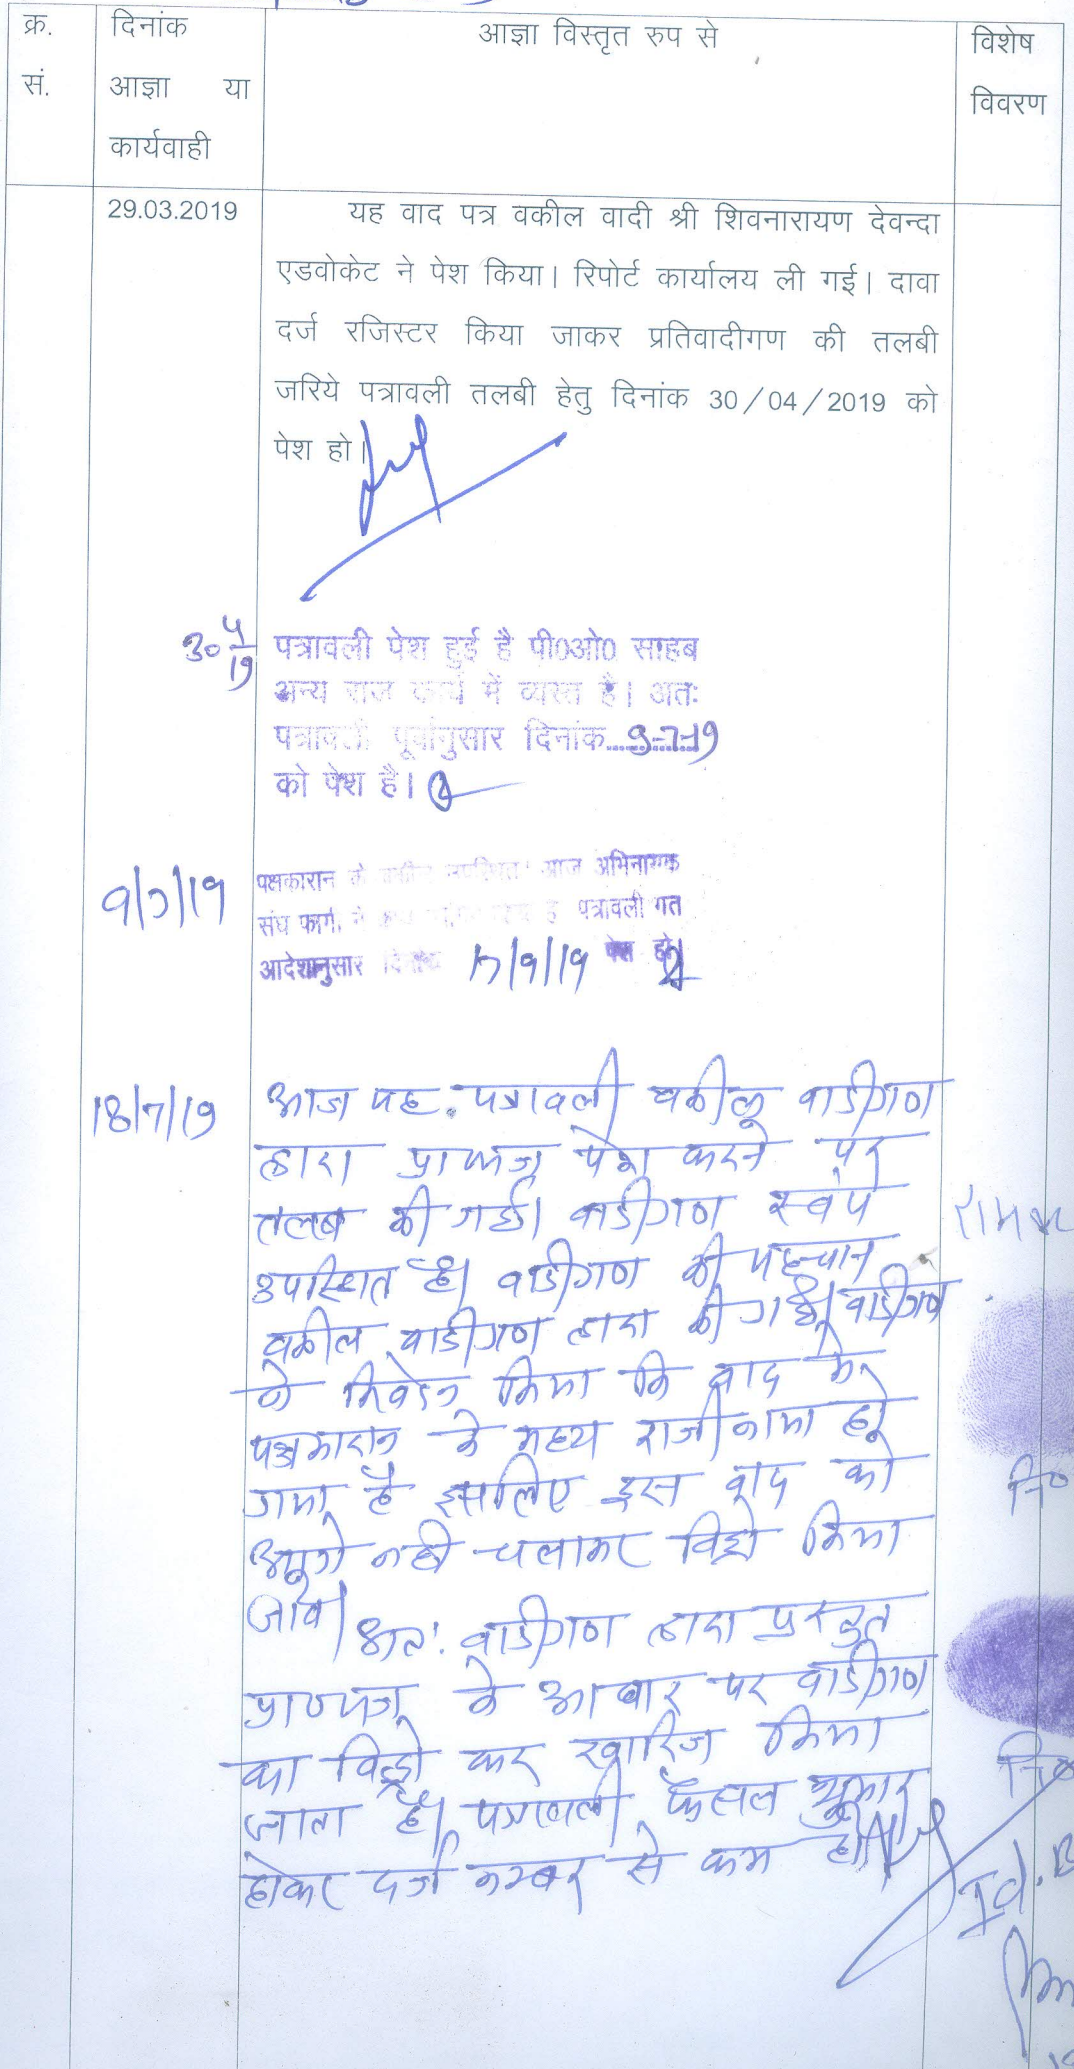 क्र. दिनांक आज्ञा विस्तृत रुप से विशेष
सं. आज्ञा या विवरण
कार्यवाही
29.03.2019 यह वाद पत्र वकील वादी श्री शिवनारायण देवन्दा
एडवोकेट ने पेश किया। रिपोर्ट कार्यालय ली गई। दावा
दर्ज रजिस्टर किया जाकर प्रतिवादीगण की तलबी
जरिये पत्रावली तलबी हेतु दिनांक 30/04/2019 को
पेश हो।
30 4/19 पत्रावली पेश हुई है पी0ओ0 साहब
अन्य राज कार्य में व्यस्त है। अतः
पत्रावली पूर्वानुसार दिनांक...9-7-19
को पेश है।
9/7/19 पक्षकारान के वकील उपस्थित आज अभिभाषक
संघ फागी ने है पत्रावली गत
आदेशानुसार दिनांक 17/9/19 पेश हो।
18/7/19 आज यह पत्रावली वकील वादीगण
द्वारा प्रा०पत्र पेश करने पर
तलब की गई। वादीगण स्वयं
उपस्थित है। वादीगण की पहचान
वकील वादीगण द्वारा की गई। वादीगण
ने निवेदन किया कि वाद के
पक्षकारान के मध्य राजीनामा हो
गया है इसलिए इस वाद को
आगे नही चलाकर विड्रो किया
जावे।
अतः वादीगण द्वारा प्रस्तुत
प्रा०पत्र के आधार पर वादीगण
का विड्रो कर खारिज किया
जाता है। पत्रावली फैसल शुमार
होकर दर्ज नम्बर से कम हो।
नि०
नि०
Id. B